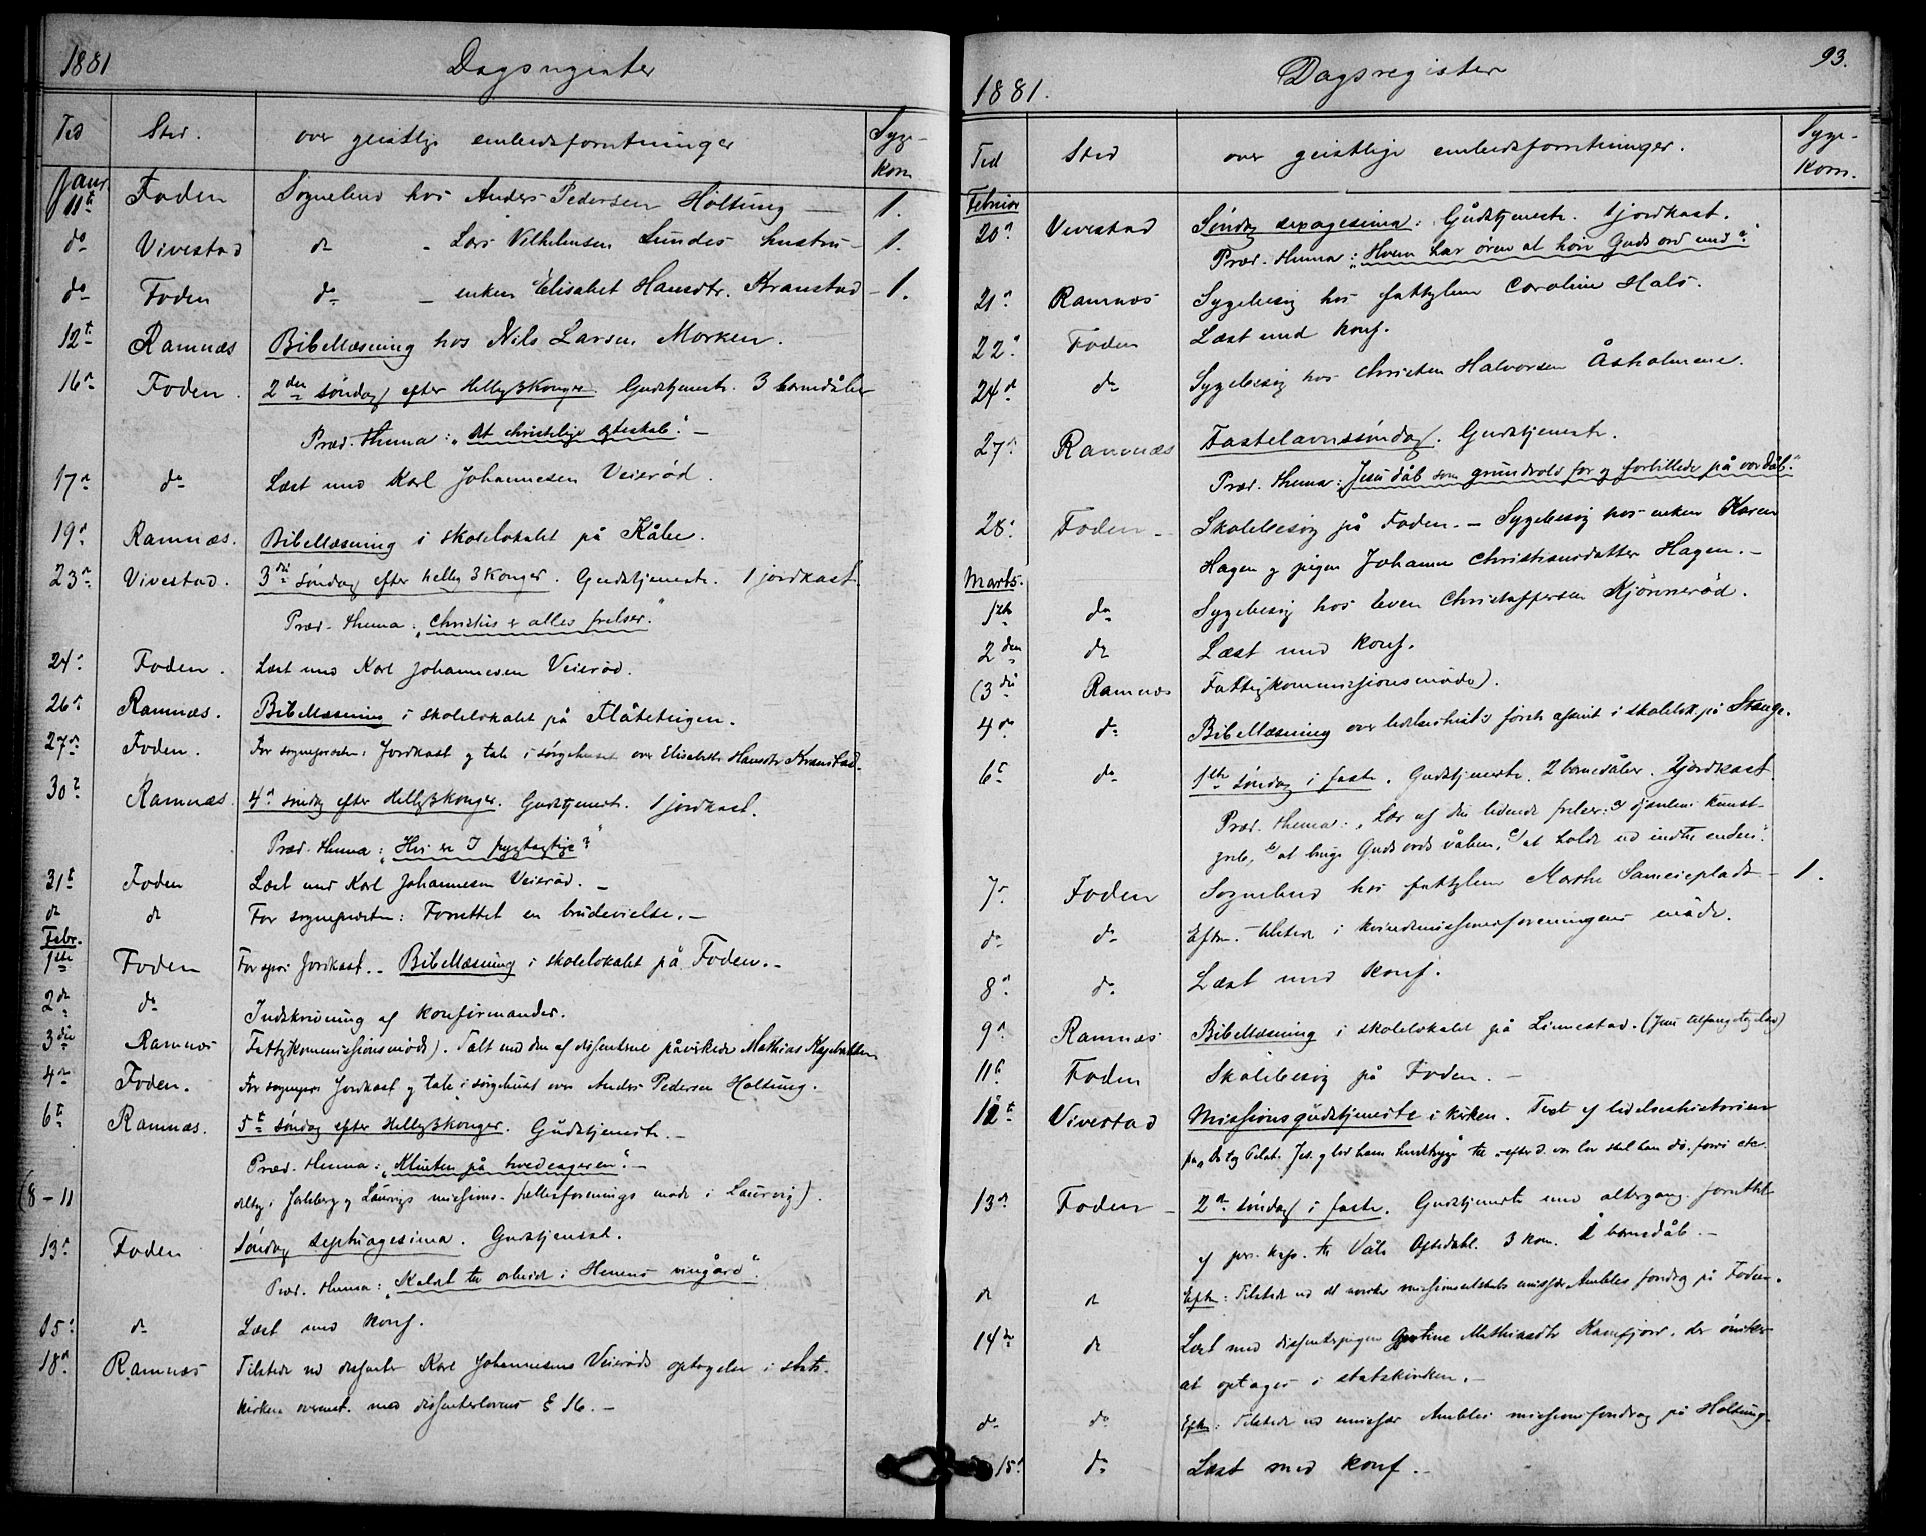 1881 Dagsregister
Tid Sted. over geistlige embedsforretninger Syge-
kom
Janr.
11t Foden Sognebud hos Anders Pedersen Holtung — 1.
do Vivestad do - Lars Vilhelmsen Sundes hustru - 1.
do Foden do - enken Elisabet Hansdtr. Kranstad - 1.
12t Ramnæs Bibellæsning hos Nils Larsen Morken.
16n Foden. 2den søndag efter Hellig3Konger. Gudstjeneste. 3 barnedåber
Præd. thema: "Det christelige ægteskab". —
17n do Læst med Karl Johannesen Veierød.
19n Ramnæs. Bibellæsning i skolelokalet på Kåbe.
23n Vivestad. 3die søndag efter hellig 3 Konger. Gudstjeneste. 1 jordkast.
Præd. thema: "Christus er alles frelser."
24n Foden. Læst med Karl Johannesen Veierød.
26n Ramnæs. Bibellæsning i skolelokalet på Flåteteigen.
27n Foden. For sognepresten: Jordkast og tale i sørgehuset over Elisabeth Hansdtr Kranstad.
30n Ramnæs. 4n søndag efter Hellig3konger. Gudstjeneste. 1 jordkast.
Præd. thema: "Hvi er I frygtagtige?"
31t Foden Læst med Karl Johannesen Veierød. —
do do For sognepresten: Forrettet en brudevielse. —
Febr.
1ste Foden For spr: Jordkast. — Bibellæsning i skolelokalet på Foden. —
2den do Indskrivning af konfirmander.
3die Ramnæs (Fattigkommissionsmöde). Talt med den af dissenterne påvirkede Mathias
4n Foden. For sognepr: Jordkast og tale i sørgehuset over Anders Pedersen Holtung.
6t Ramnæs. 5t søndag efter Hellig3konger. Gudstjeneste. —
Præd. thema: "Klinten på hvedeageren". —
(8-11 deltog i Jarlsberg og Laurvigs missions-fællesforenings møde i Laurvig).
13n Foden Søndag septuagesima. Gudstjenest.
Præd. thema: "Kaldet til arbeide i Herrens vingård".
15n do Læst med konf.
18n Ramnæs Tilstede ved dissenter Karl Johannesens Veierøds optagelse i stats-
kirken overenst. med dissenterlovens § 16. —
1881. Dagsregister 93.
Tid Sted over geistlige embedsforretninger. Syge-
kom.
Februar
20n Vivestad Søndag sexagesima: Gudstjeneste. 1 jordkast.
Præd. thema: "Hvem har øren at høre Guds ord med?"
21n Ramnæs Sygebesøg hos fattiglem Caroline Hals.
22n Foden Læst med konf.
24n do Sygebesøg hos Christen Halvorsen Åsholmene.
27n Ramnæs Fastelavnssøndag. Gudstjeneste.
Præd. thema: "Jesu dåb som grundvold for og forbillede på vor dåb."
28n Foden - Skolebesøg på Foden. — Sygebesøg hos enken Karen
Hagen og pigen Johanne Christiansdatter Hagen. —
Marts.
1ste do Sygebesøg hos Even Christoffersen Kjønnerød.
2den do Læst med konf.
(3die Ramnæs Fattigkommissionsmøde).
4n do Bibellæsning over lidelseshist's første afsnit i skolelok. på Stange.
6t do 1ste søndag i faste. Gudstjeneste. 2 barnedåber. 2 jordkast
Præd. thema: "Lær af din lidende frelser: a) djævlens kunst-
greb, b) at bruge Guds ords våben, c) at holde ud indtil enden".
7n Foden Sognebud hos fattiglem Marthe Sameieplads - 1.
do do Eftm. tilstede i kvindemissionsforeningens möde.
8n do Læst med konf.
9n Ramnæs Bibellæsning i skolelokalet på Linnestad. (Jesu tilfangetagelse)
11t Foden Skolebesøg på Foden. —
12t Vivestad Missionsgudstjeneste i kirken. Text af lidelseshistorien
13n Foden - 2n søndag i faste. Gudstjeneste med altergang forrettet
af pers. kap. til Våle Oftedahl. 3 kom. 1 barnedåb. —
do do Eftm: Tilstede ved det norske missionsselskabs emissær Ambles foredrag på Foden.
14de do Læst med dissenterpigen Mathiasdtr Ramfjord, der ønsker
at optages i statskirken. —
do do Eftm: Tilstede ved emissær Ambles missionsforedrag på Holtung.
15n do Læst med konf. —